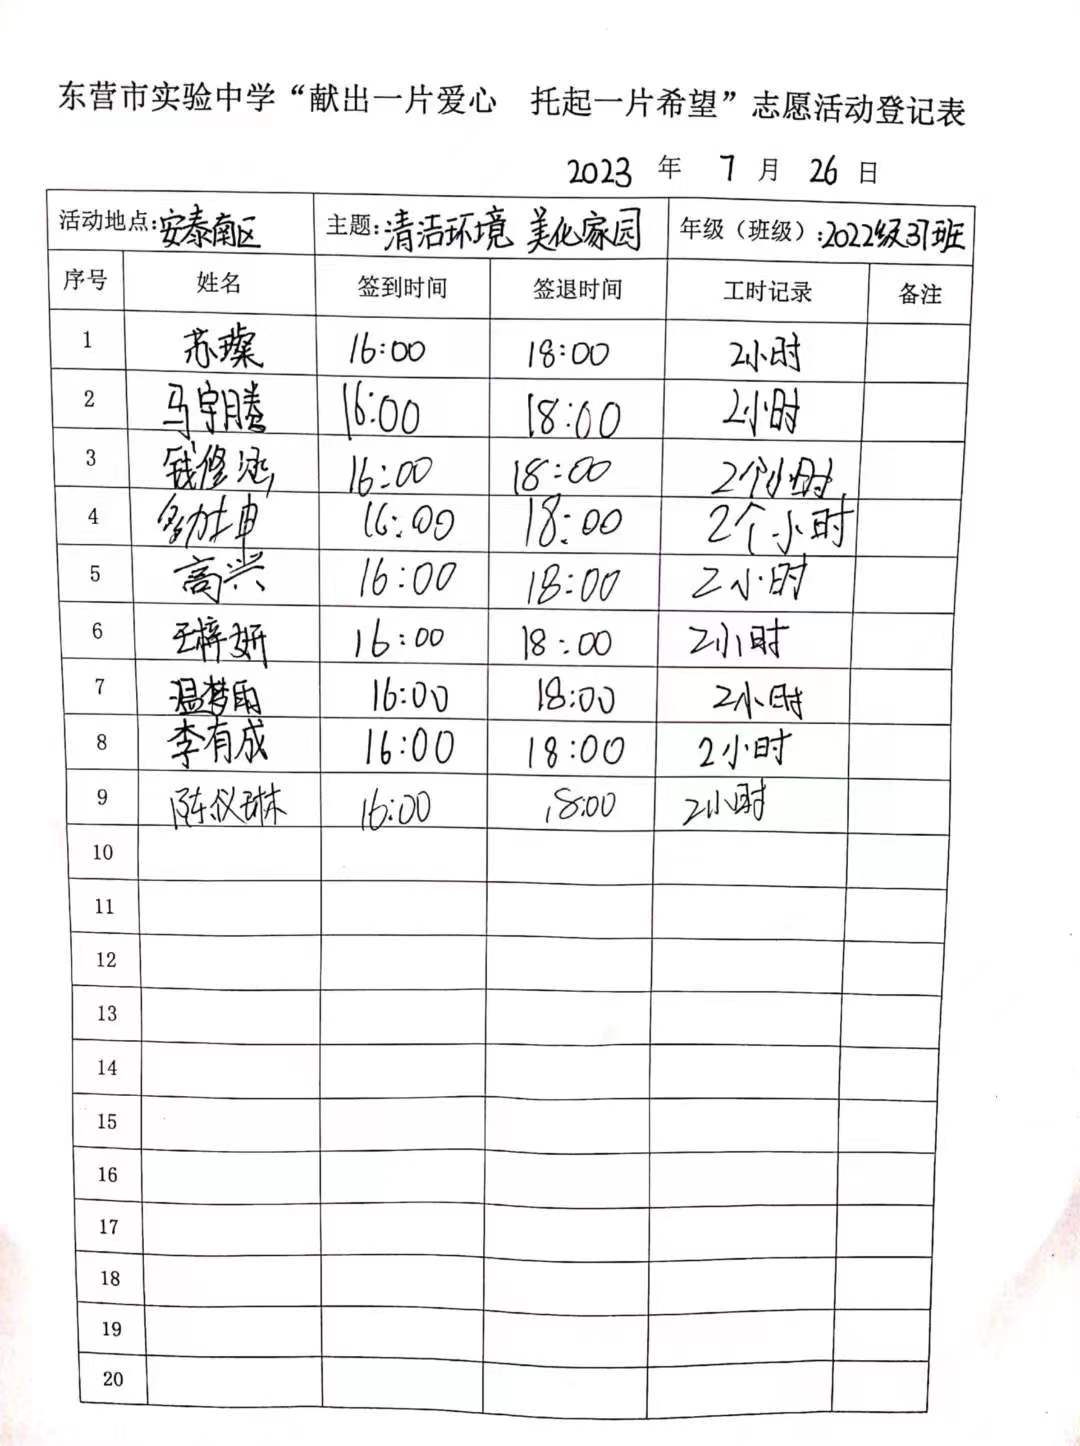 东营市实验中学“献出一片爱心 托起一片希望”志愿活动登记表
2023 年 7 月 26 日
活动地点:安泰南区 主题:清洁环境 美化家园 年级（班级）:2022级31班
序号 姓名 签到时间 签退时间 工时记录 备注
1 苏璨 16:00 18:00 2小时
2 马宇腾 16:00 18:00 2小时
3 钱修涵 16:00 18:00 2个小时
4 16:00 18:00 2个小时
5 高兴 16:00 18:00 2小时
6 王梓妍 16:00 18:00 2小时
7 温梦雨 16:00 18:00 2小时
8 李有成 16:00 18:00 2小时
9 陈仪琳 16:00 18:00 2小时
10
11
12
13
14
15
16
17
18
19
20